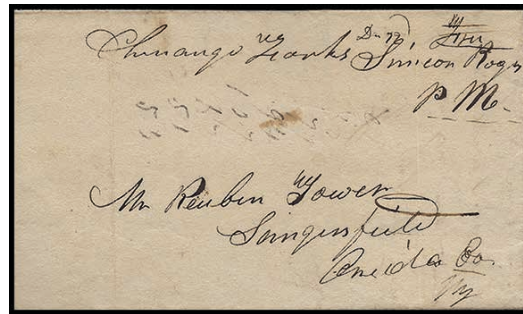 Chenango Forks NY Simeon Rogers
P M.
Mr Reuben Tower
Sangersfield
Oneida Co.
NY